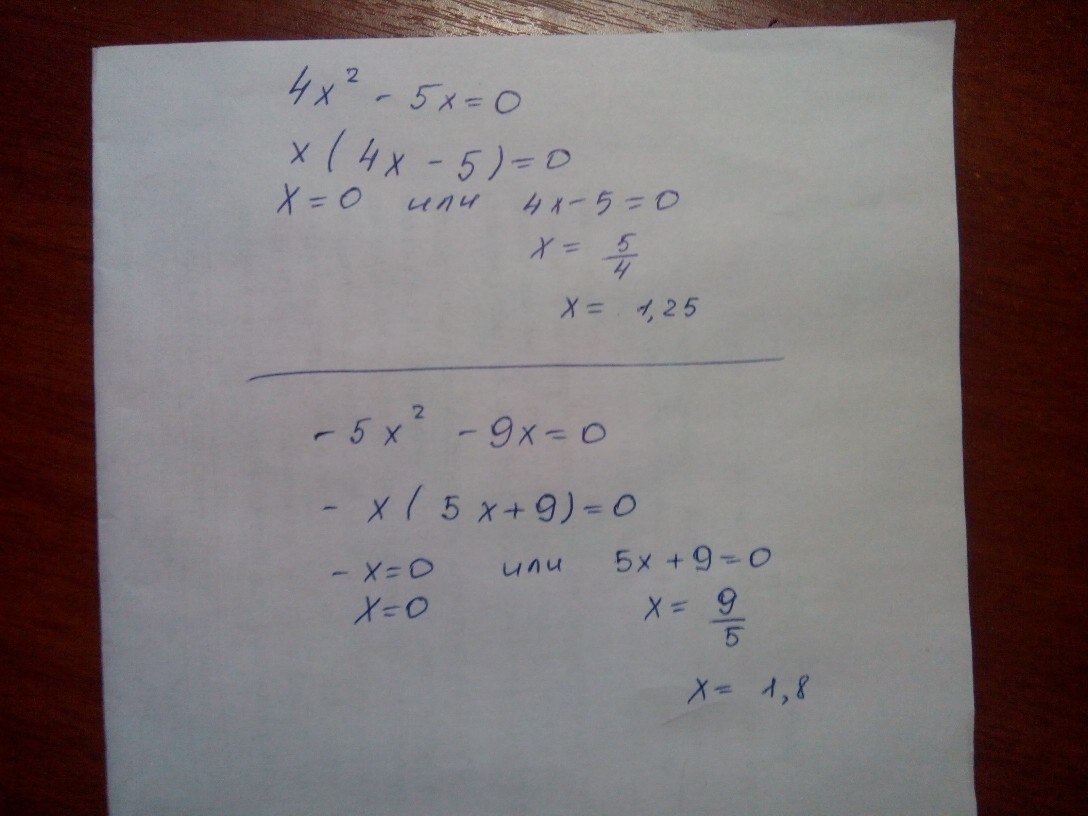 4x² - 5x = 0
x(4x - 5) = 0
x = 0 или 4x - 5 = 0
x = 5/4
x = 1,25
-5x² - 9x = 0
-x(5x + 9) = 0
-x = 0 или 5x + 9 = 0
x = 0 x = 9/5
x = 1,8